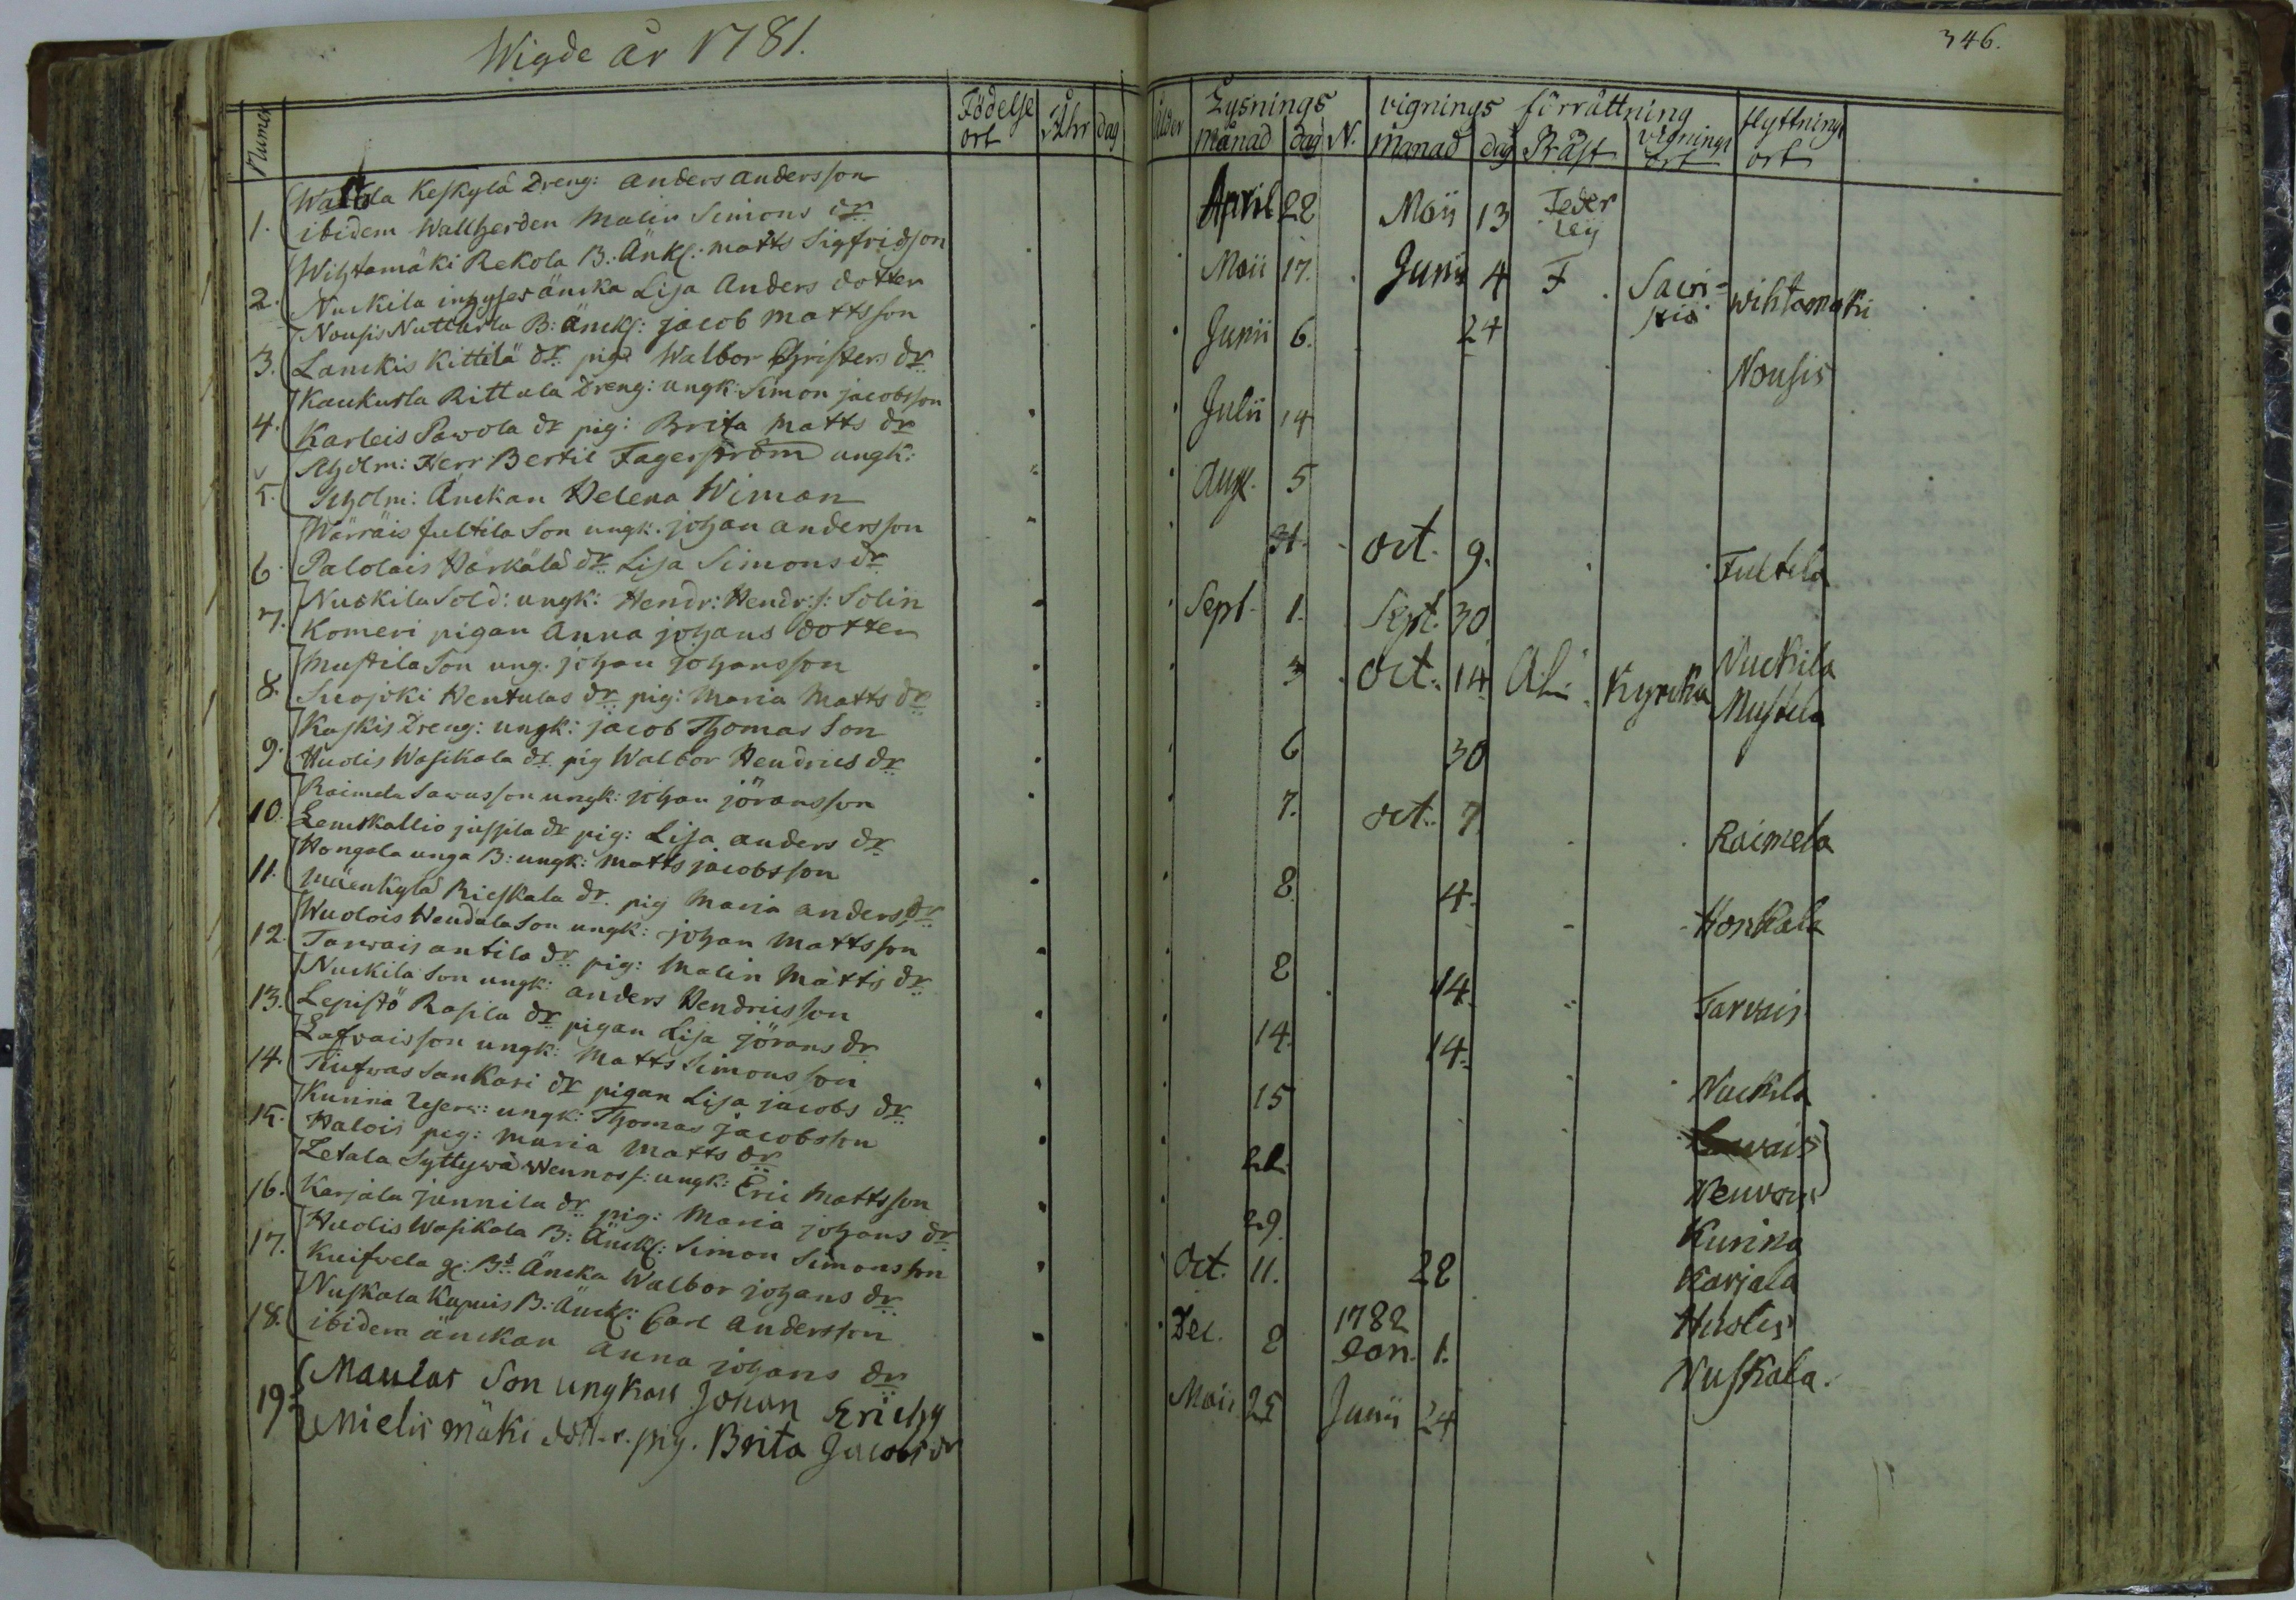 Wigde år 1781.
346.
Numer
Födelse ort
Åhr
dag
Ålder
Lysnings
månad
dag
N.
vignings förrättning
månad
dag
Präst
vignings ort
flyttnings ort
1. Keskylä Dreng: anders andersson
ibidem Wallherden Malin Simons dr
April 22 Maij 13 Feder leij
2. Wihtamäki Rekola B. Änkl: matts Sigfridsson
Nuckila inhyses äncka Lisa Anders dotter
Maii 17. Junii 4 F Sacristia wihtamäki
3. Nousis B: änckl: jacob mattsson
Lanckis Kittilä dr pig: Walbor Christers dr
Junii 6. 24 Nousis
4. Kaukurla Rittala Dreng: ungk: Simon jacobsson
Karleis Pawola dr pig: Brita matts dr
Julii 14
5. Stholm: Herr Bertil Fagerström ungk:
Stholm: Änckan Helena Wiman
Aug. 5
6. Wärräis fultila Son ungk: johan andersson
Palolais Härkälä dr Lisa Simons dr
31. oct. 9. Fultila
7. Nuckila Sold: ungk: Hendr: Hendr: s: Solin
Komeri pigan Anna johans dotter
Sept. 1. Sept. 30 Nuckila
8. Mustila Son ung. johan johansson
Suojoki Hentulas dr pig: Maria Matts dr
3 oct. 14 Kyrcka Mustila
9. Kaskis Dreng: ungk: jacob Thomas Son
Huolis Wasikala dr pig Walbor Hendrics dr
6 30
10. Raimela ungk: johan jöransson
Lemskallio jussila dr pig: Lisa anders dr
7. oct. 7. Raimela
11. Hongola unga B: ungk: matts jacobsson
Mäenkylä Rieskala dr. pig maria anders dr
8. 4. Honkala
12. Wuolois Hendala Son ungk: johan mattsson
Tarvais antila dr pig: Malin Matts dr
8 14. Tarvais
13. Nuckila Son ungk: anders Hendricsson
Lepistö Rasila dr pigan Lisa jörans dr
14. 14. Nuckila
14. ungk: Matts Simonsson
Sankari dr pigan Lisa jacobs dr
15
15. Kunina ungk: Thomas jacobsson
Halois pig: maria Matts dr
22. Kunina
16. Letala Syttywä Wennos s: ungk: Eric Mattsson
Karjala junnila dr pig: Maria johans dr
29. Karjala
17. Huolis Wasikala B: Änckl: Simon Simonsson
Kuifwela gl: Bs Äncka Walbor johans dr
Oct. 11. 28 Huolis
18. Nuskala Kapuis B: Änckl: Carl andersson
ibidem änckan anna johans dr
Dec. 8 1782 Jan. 1. Nuskala.
19. Maulas Son ungkarl Johan
Mielis mäki dott-r. pig. Brita Jacobs dr
Maii 25 Junii 24